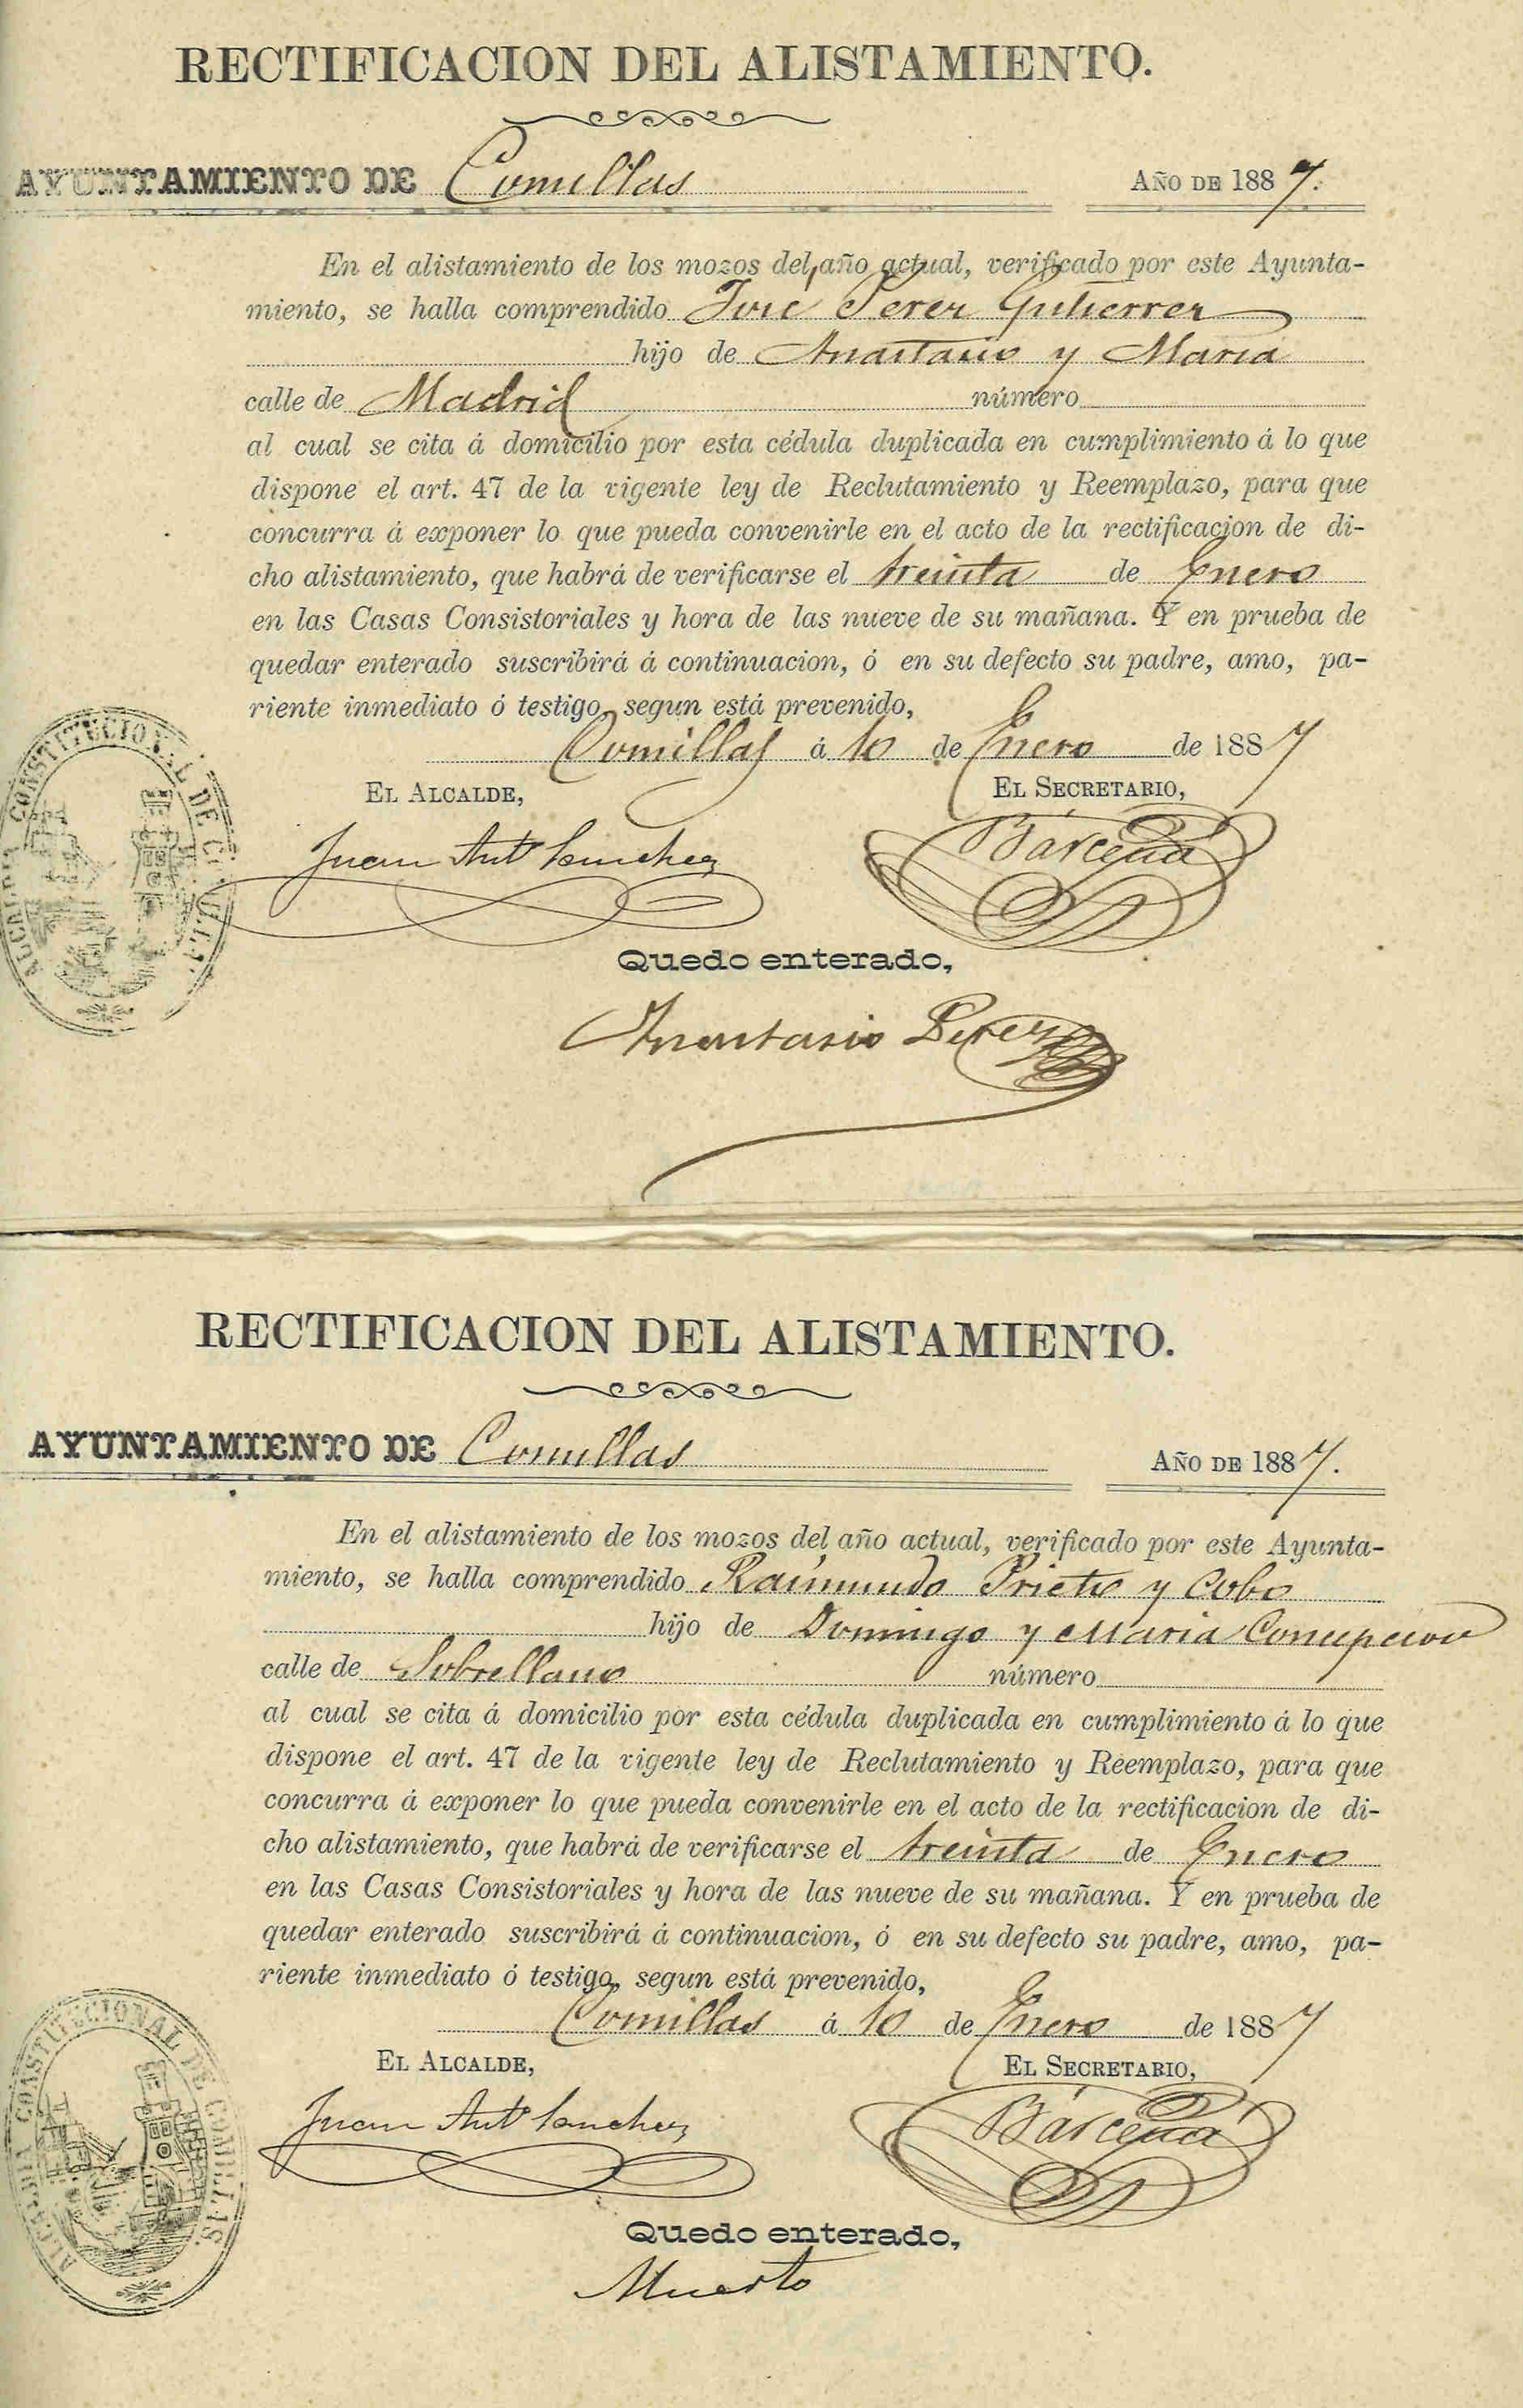 RECTIFICACION DEL ALISTAMIENTO.
AYUNTAMIENTO DE Comillas AÑO DE 1887.
En el alistamiento de los mozos del año actual, verificado por este Ayunta-
miento, se halla comprendido José Perez Gutierrez
hijo de Anastasio y Maria
calle de Madrid número
al cual se cita á domicilio por esta cédula duplicada en cumplimiento á lo que
dispone el art. 47 de la vigente ley de Reclutamiento y Reemplazo, para que
concurra á exponer lo que pueda convenirle en el acto de la rectificacion de di-
cho alistamiento, que habrá de verificarse el treinta de Enero
en las Casas Consistoriales y hora de las nueve de su mañana. Y en prueba de
quedar enterado suscribirá á continuacion, ó en su defecto su padre, amo, pa-
riente inmediato ó testigo, segun está prevenido,
Comillas á 10 de Enero de 1887
EL ALCALDE, EL SECRETARIO,
Juan Antº Sanchez Bárcena
ALCALDIA CONSTITUCIONAL DE COMILLAS.
Quedo enterado,
Anastasio Perez
RECTIFICACION DEL ALISTAMIENTO.
AYUNTAMIENTO DE Comillas AÑO DE 1887.
En el alistamiento de los mozos del año actual, verificado por este Ayunta-
miento, se halla comprendido Raimundo Prieto y Cobo
hijo de Domingo y Maria Concepcion
calle de Sobrellano número
al cual se cita á domicilio por esta cédula duplicada en cumplimiento á lo que
dispone el art. 47 de la vigente ley de Reclutamiento y Reemplazo, para que
concurra á exponer lo que pueda convenirle en el acto de la rectificacion de di-
cho alistamiento, que habrá de verificarse el treinta de Enero
en las Casas Consistoriales y hora de las nueve de su mañana. Y en prueba de
quedar enterado suscribirá á continuacion, ó en su defecto su padre, amo, pa-
riente inmediato ó testigo, segun está prevenido,
Comillas á 10 de Enero de 1887
EL ALCALDE, EL SECRETARIO,
Juan Antº Sanchez Bárcena
ALCALDIA CONSTITUCIONAL DE COMILLAS.
Quedo enterado,
Muerto